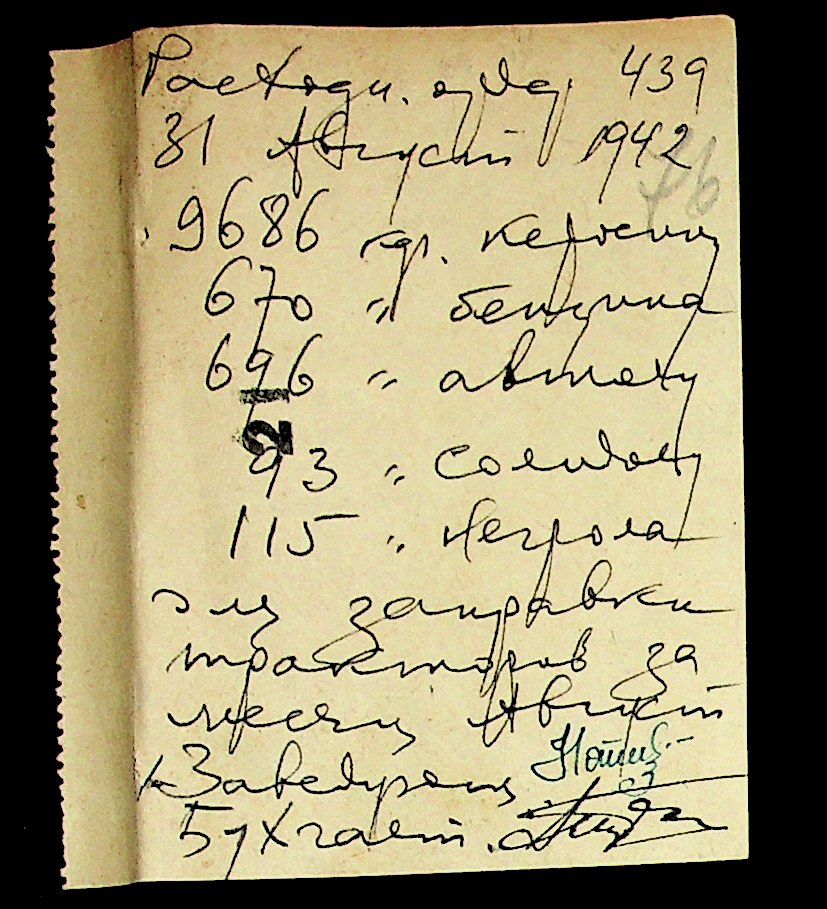 Расходн. орд. 439
31 Август 1942
76
9686 кгр. керосину
670 " бензина
696 " автолу
21
93 " солидолу
115 " Негрола
для заправки
тракторов за
месяц Август
Заведующ
Бухгалт.